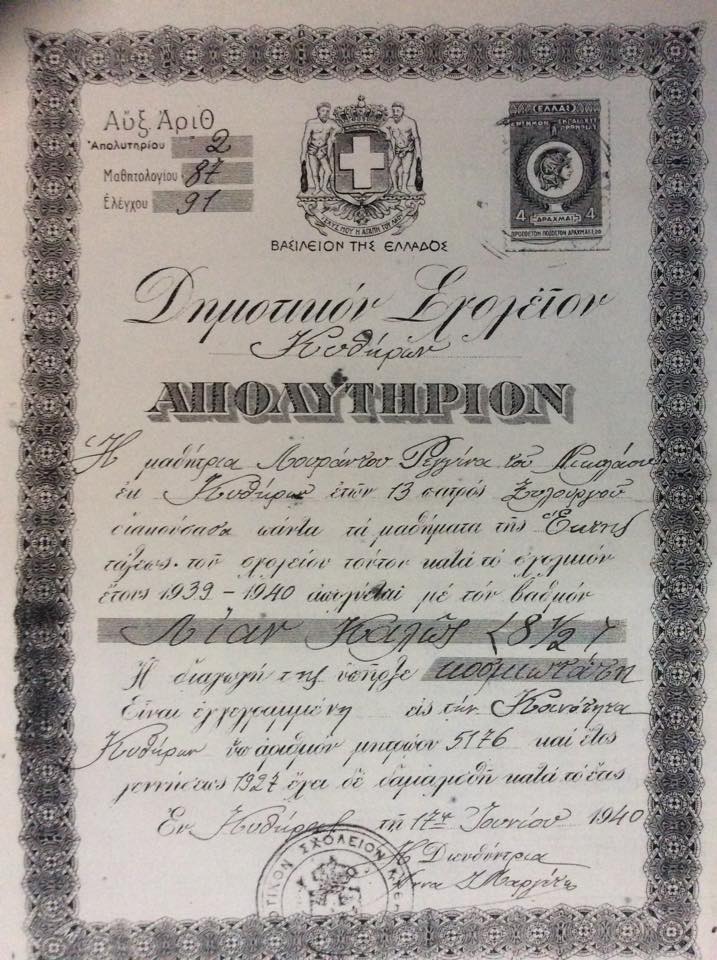 Αὔξ Ἀριθ
Ἀπολυτηρίου 2
Μαθητολογίου 87
Ἐλέγχου 91
ΙΣΧΥΣ ΜΟΥ Η ΑΓΑΠΗ ΤΟΥ ΛΑΟΥ
ΒΑΣΙΛΕΙΟΝ ΤΗΣ ΕΛΛΑΔΟΣ
ΕΛΛΑΣ
4 ΔΡΑΧΜΑΙ 4
Δημοτικόν Σχολεῖον
Κυθήρων
ΑΠΟΛΥΤΗΡΙΟΝ
Ἡ μαθήτρια Λουράντου Ρεγγίνα τοῦ Νικολάου
ἐκ Κυθήρων ἐτῶν 13 πατρός ξυλουργοῦ
διακούσασα πάντα τά μαθήματα τῆς Ἕκτης
τάξεως τοῦ σχολείου τούτου κατά τό σχολικόν
ἔτος 1939 - 1940 ἀπολύεται μέ τόν βαθμόν
Λίαν Καλῶς (8 1/2)
Ἡ διαγωγή της ὑπῆρξε κοσμιωτάτη
Εἶναι ἐγγεγραμμένη εἰς τήν Κοινότητα
Κυθήρων ὑπ' ἀριθμόν μητρώου 5176 καί ἔτος
γεννήσεως 1927 ἔχει δέ δαμαλισθῆ κατά τό ἔτος
Ἐν Κυθήροις τῇ 17ῃ Ἰουνίου 1940
Ἡ Διευθύντρια
ΟΤΙΚΟΝ ΣΧΟΛΕΙΟΝ